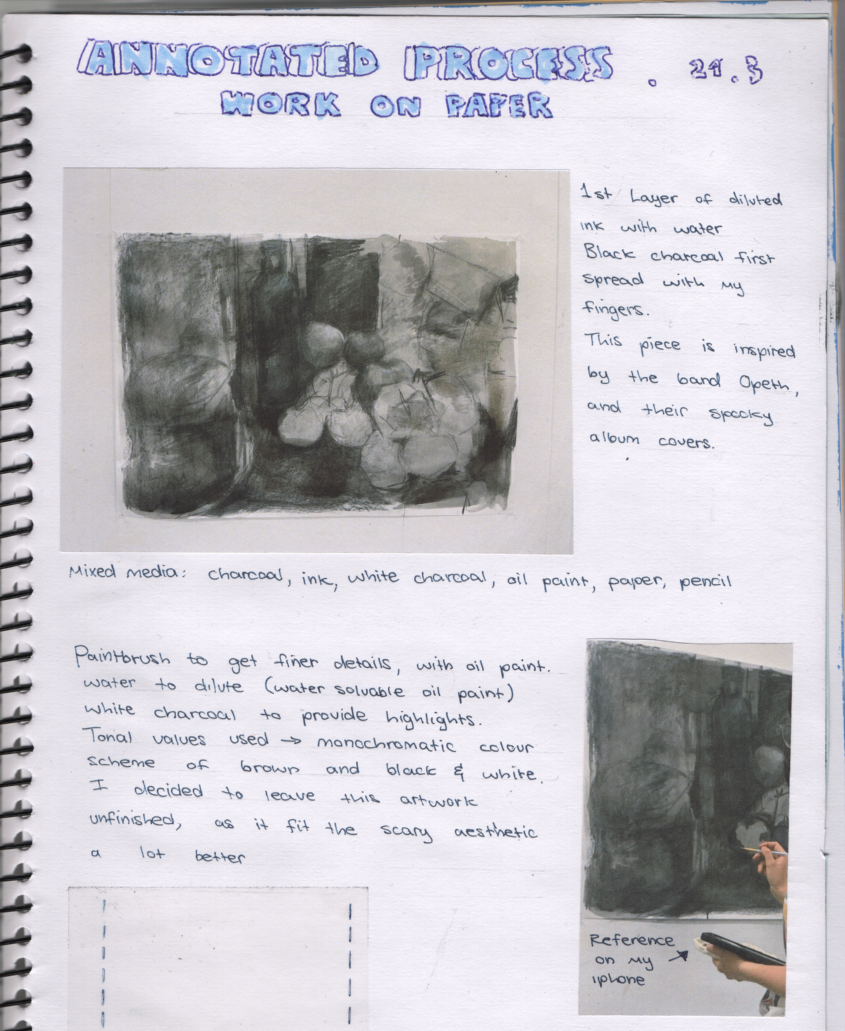 ANNOTATED PROCESS . 24.3
WORK ON PAPER
1st Layer of diluted
ink with water
Black charcoal first
spread with my
fingers.
This piece is inspired
by the band Opeth,
and their spooky
album covers.
Mixed media: charcoal, ink, white charcoal, oil paint, paper, pencil
Paintbrush to get finer details, with oil paint.
water to dilute (water soluable oil paint)
white charcoal to provide highlights.
Tonal values used → monochromatic colour
scheme of brown and black & white.
I decided to leave this artwork
unfinished, as it fit the scary aesthetic
a lot better
Reference
on my
iphone